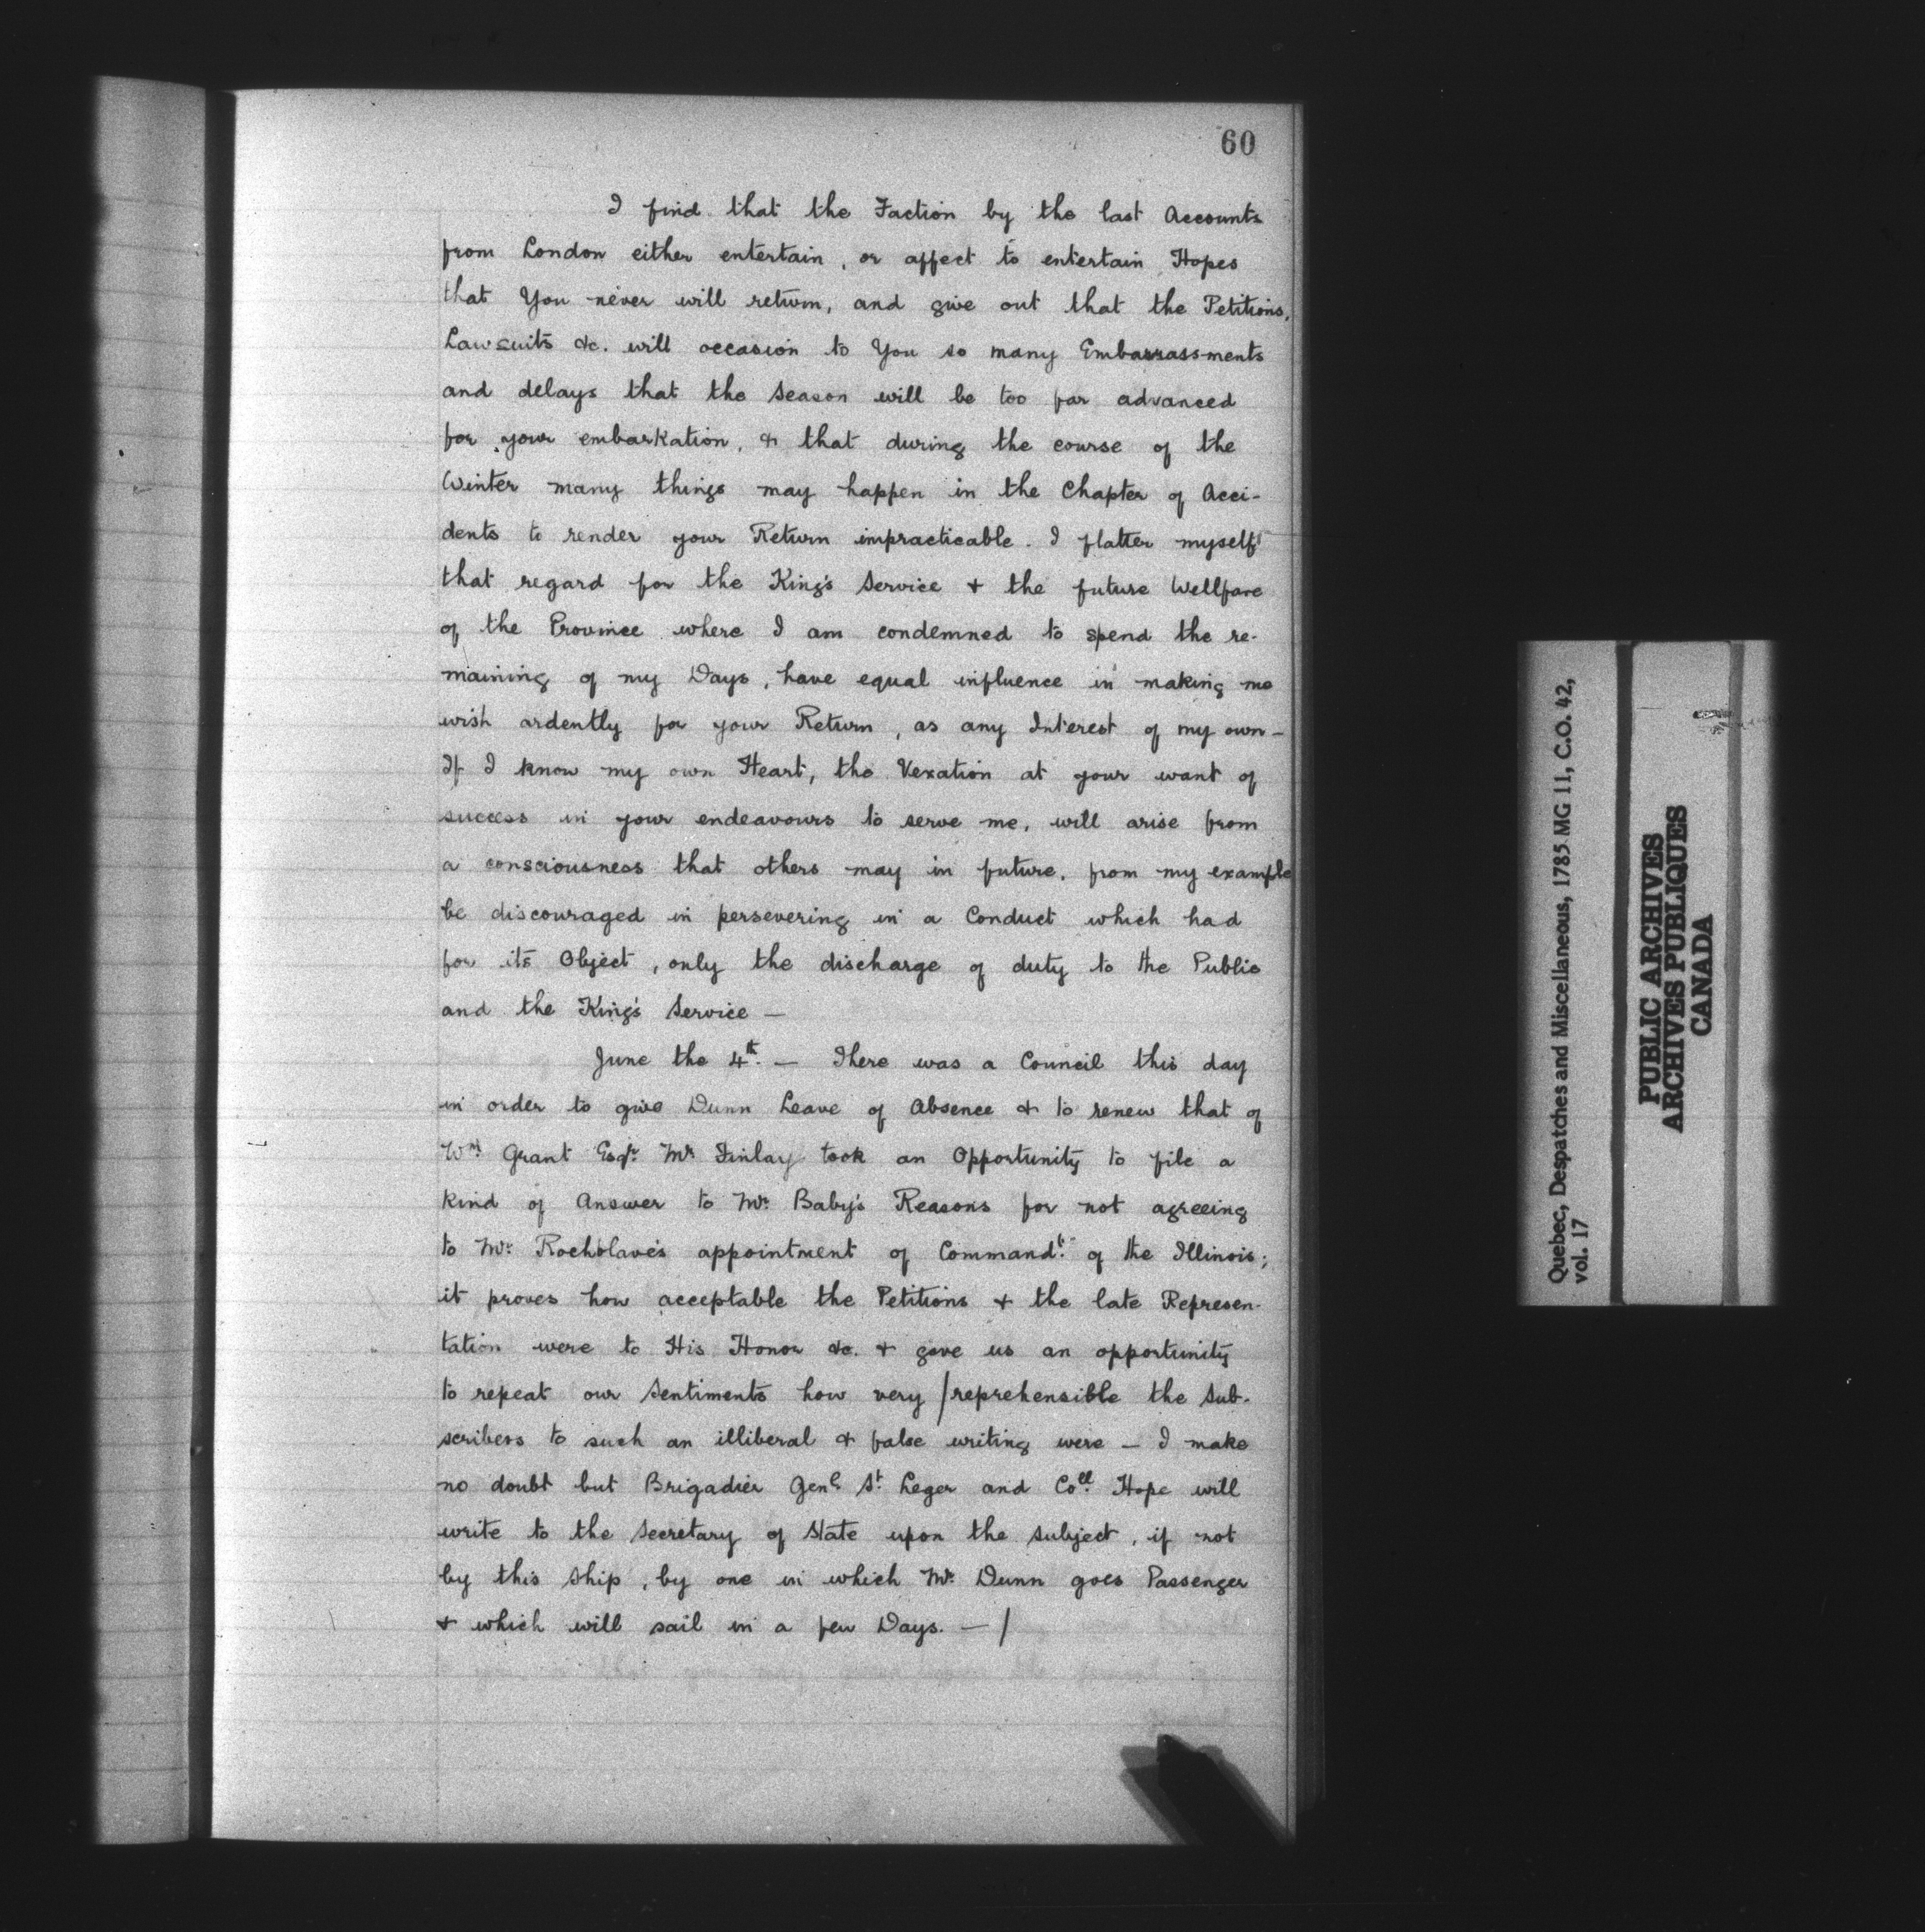 60
I find that the Faction by the last Accounts
from London either entertain, or affect to entertain Hopes
that You never will return, and give out that the Petitions,
Lawsuits &c. will occasion to You so many Embarrassments
and delays that the Season will be too far advanced
for your embarkation, & that during the course of the
Winter many things may happen in the Chapter of Acci-
dents to render your Return impracticable. I flatter myself
that regard for the King's Service & the future Wellfare
of the Province where I am condemned to spend the re-
maining of my Days, have equal influence in making me
wish ardently for your Return, as any Interest of my own -
If I know my own Heart, the Vexation at your want of
success in your endeavours to serve me, will arise from
a consciousness that others may in future, from my example
be discouraged in persevering in a Conduct which had
for its Object, only the discharge of duty to the Public
and the King's Service —
June the 4th. — There was a Council this day
in order to give Dunn Leave of Absence & to renew that of
Wm. Grant Esqr. Mr. Finlay took an Opportunity to file a
kind of Answer to Mr. Baby's Reasons for not agreeing
to Mr. Rochblave's appointment of Commandt. of the Illinois;
it proves how acceptable the Petitions & the late Represen-
tation were to His Honor &c. & gave us an opportunity
to repeat our Sentiments how very /reprehensible the Sub-
scribers to such an illiberal & false writing were — I make
no doubt but Brigadier Genl. St. Leger and Coll. Hope will
write to the Secretary of State upon the subject, if not
by this Ship, by one in which Mr. Dunn goes Passenger
& which will sail in a few Days. — /
Quebec, Despatches and Miscellaneous, 1785 MG 11, C.O. 42,
vol. 17
PUBLIC ARCHIVES
ARCHIVES PUBLIQUES
CANADA